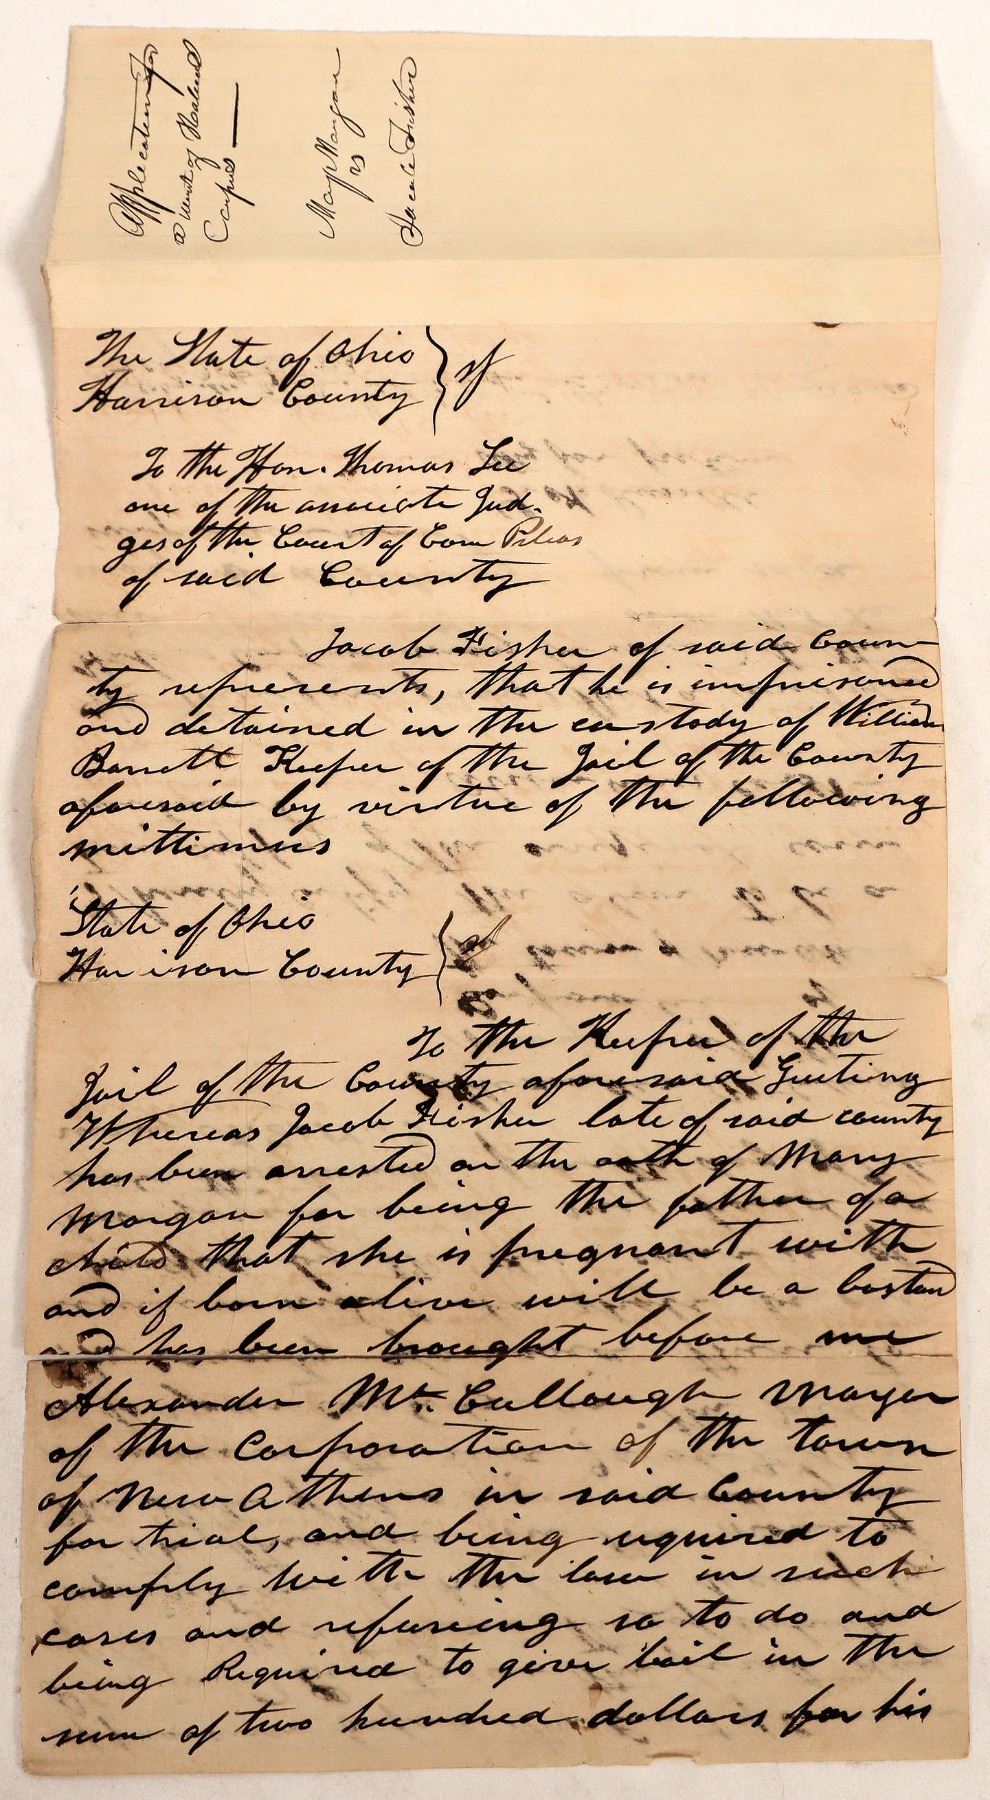 Application for
a writ of Habeus
Corpus
Mary Morgan
vs
Jacob Fisher
The State of Ohio
Harrison County } ss
To the Hon. Thomas Lee
one of the associate Jud-
ges of the Court of Com Pleas
of said County
Jacob Fisher of said Coun
ty represents, that he is imprisoned
and detained in the custody of William
Barrett Keeper of the Jail of the County
aforesaid by virtue of the following
mittimus
"State of Ohio
Harrison County } ss
To the Keeper of the
Jail of the County aforesaid Greeting
Whereas Jacob Fisher late of said county
has been arrested on the oath of Mary
Morgan for being the father of a
child that she is pregnant with
and if born alive will be a bastard
and has been brought before me
Alexander Mc. Cullough Mayor
of the Corporation of the town
of New Athens in said County
for trial, and being required to
comply with the law in such
cases and refuseing so to do and
being Required to give bail in the
sum of two hundred dollars for his